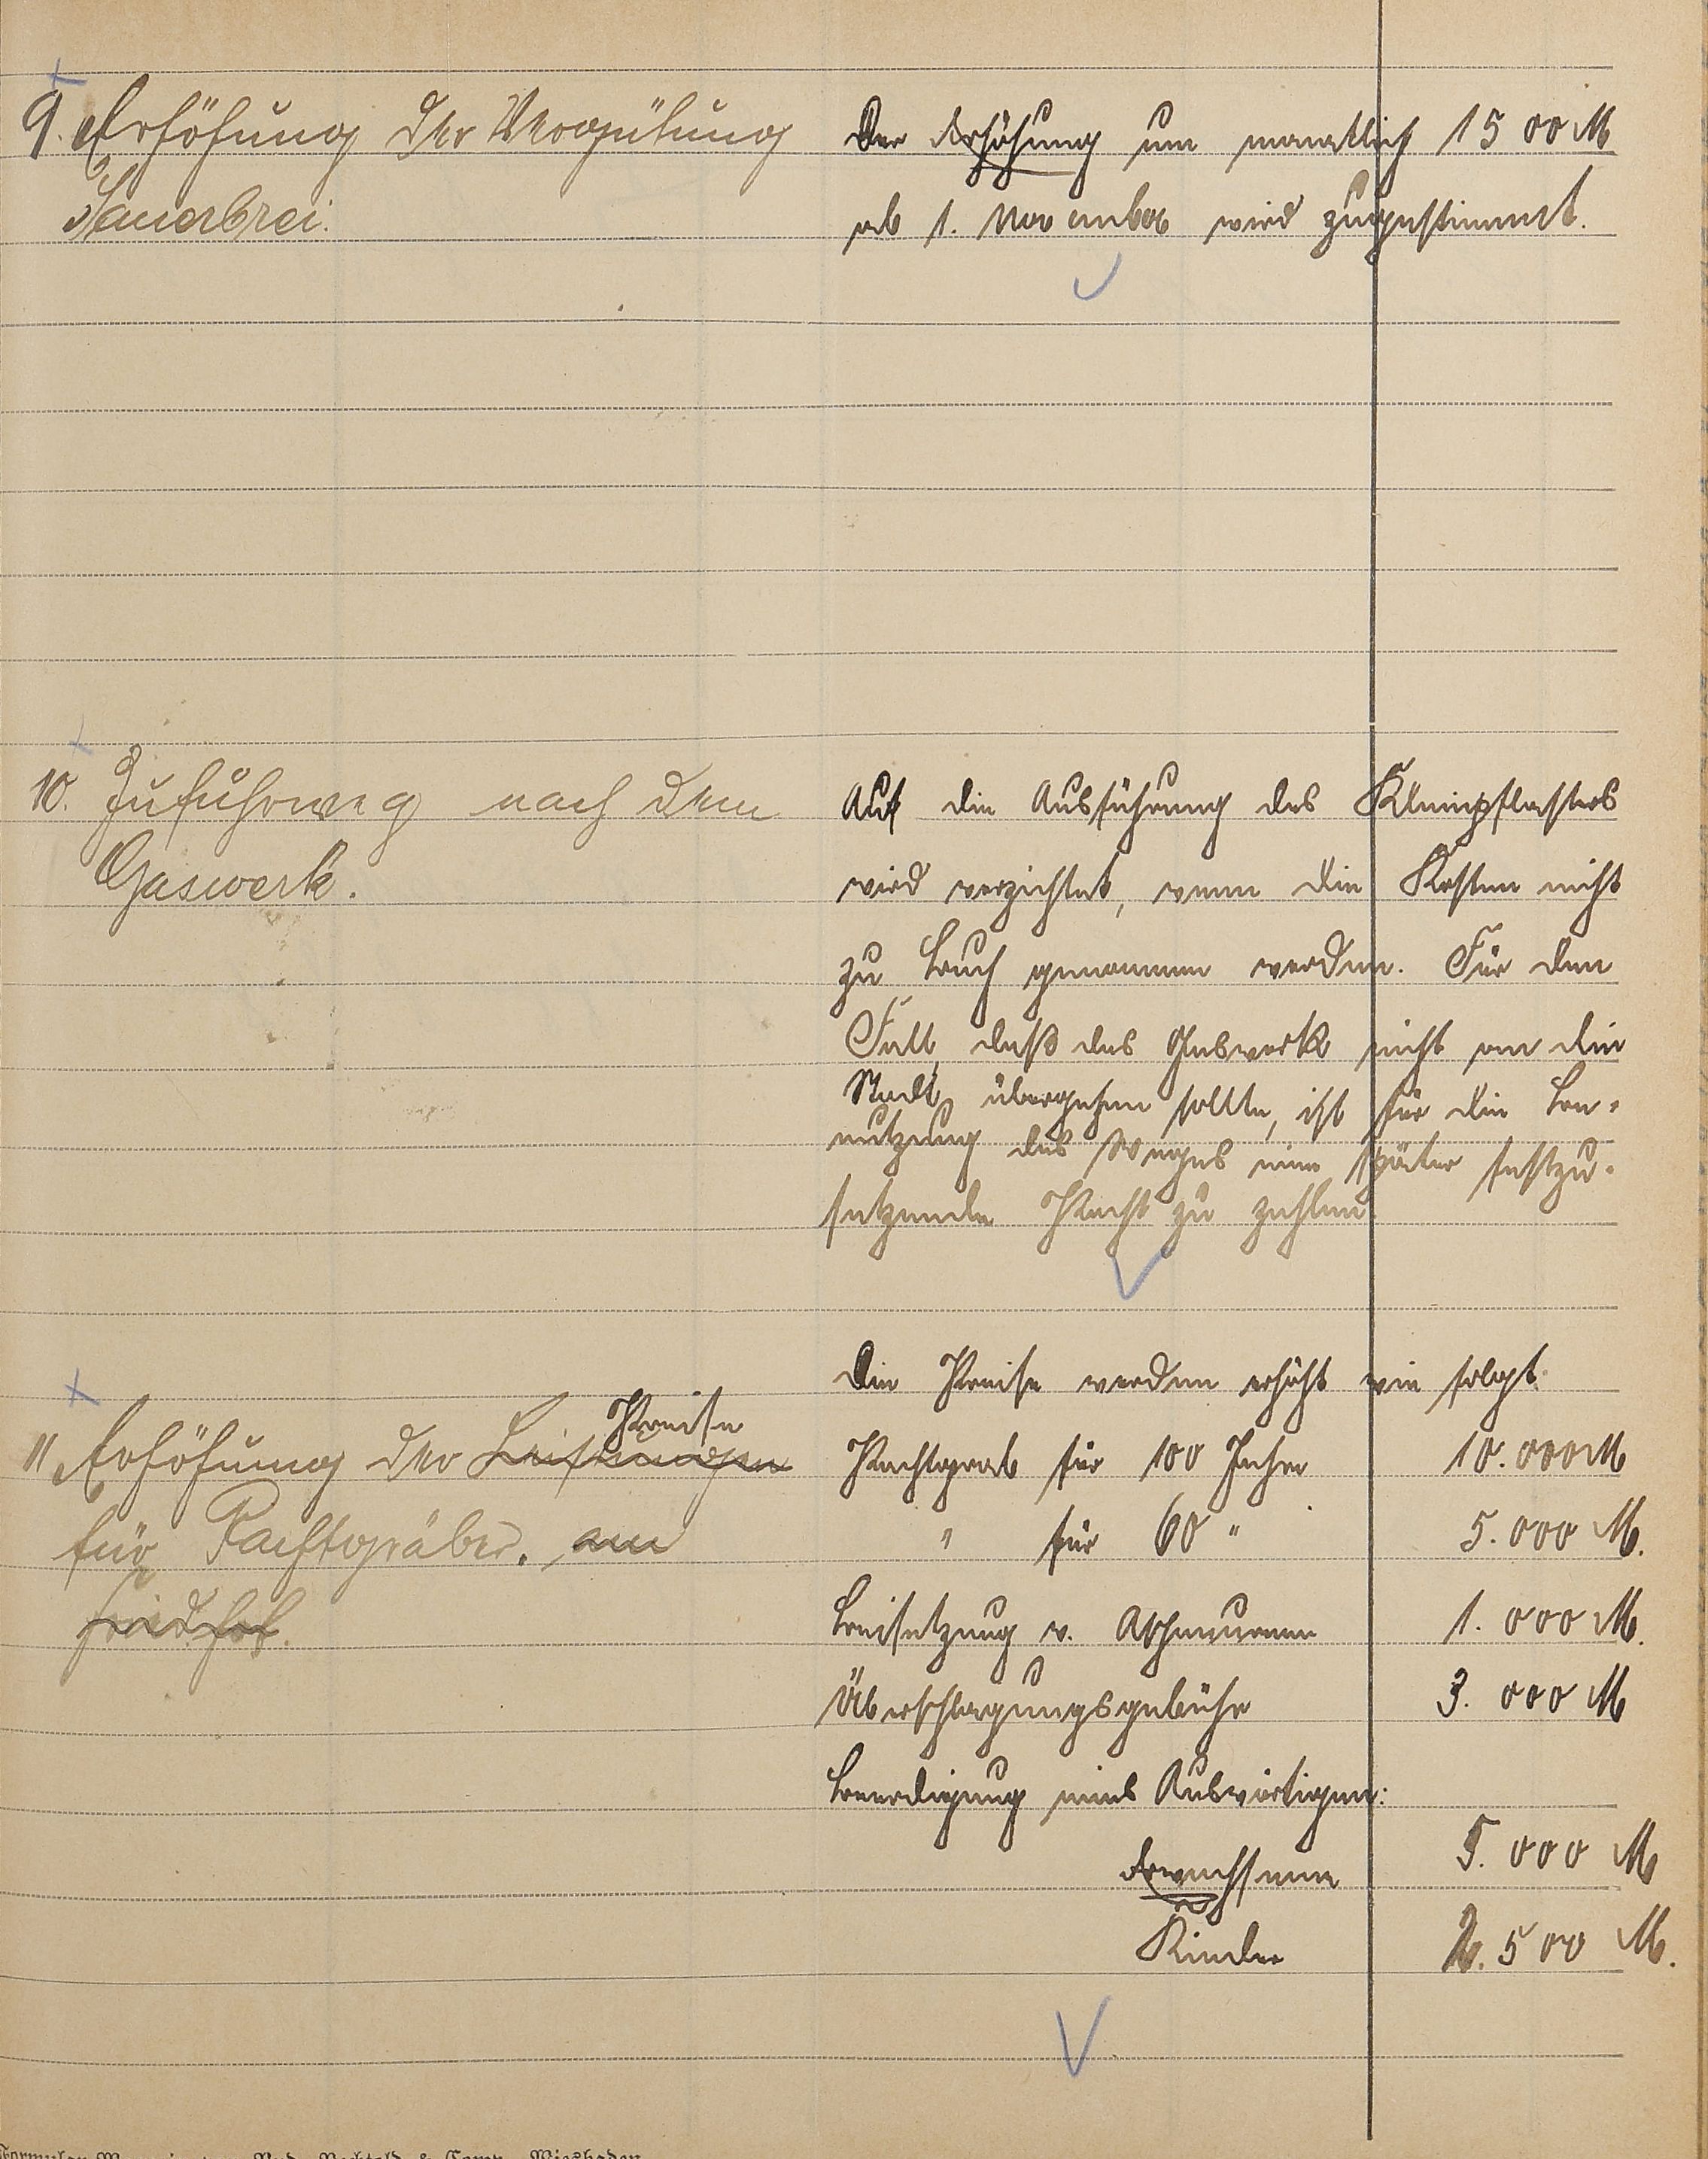 9. Erhöhung der Vergütung
Sauerbrei.
Der Erhöhung um monatlich 1500 M
ab 1. November wird zugestimmt.
10. Zuführweg nach dem
Gaswerk.
Auf die Ausführung des Kleinpflasters
wird verzichtet, wenn die Kosten nicht
zu hoch genommen werden. Für den
Fall, daß das Gaswerk nicht an die
Stadt übergehen sollte, ist für die Be-
nutzung des Weges eine später festzu-
setzende Pacht zu zahlen.
11. Erhöhung der Leistungen Preise
für Pachtgräber. am
Friedhof.
Die Preise werden erhöht wie folgt:
Pachtgrab für 100 Jahre 10.000 M
" für 60 " 5.000 M.
Beisetzung v. Aschenurnen 1.000 M.
Überschlagungsgebühr 3.000 M
Beerdigung eines Auswärtigen:
Erwachsene 5.000 M
Kinder 2.500 M.